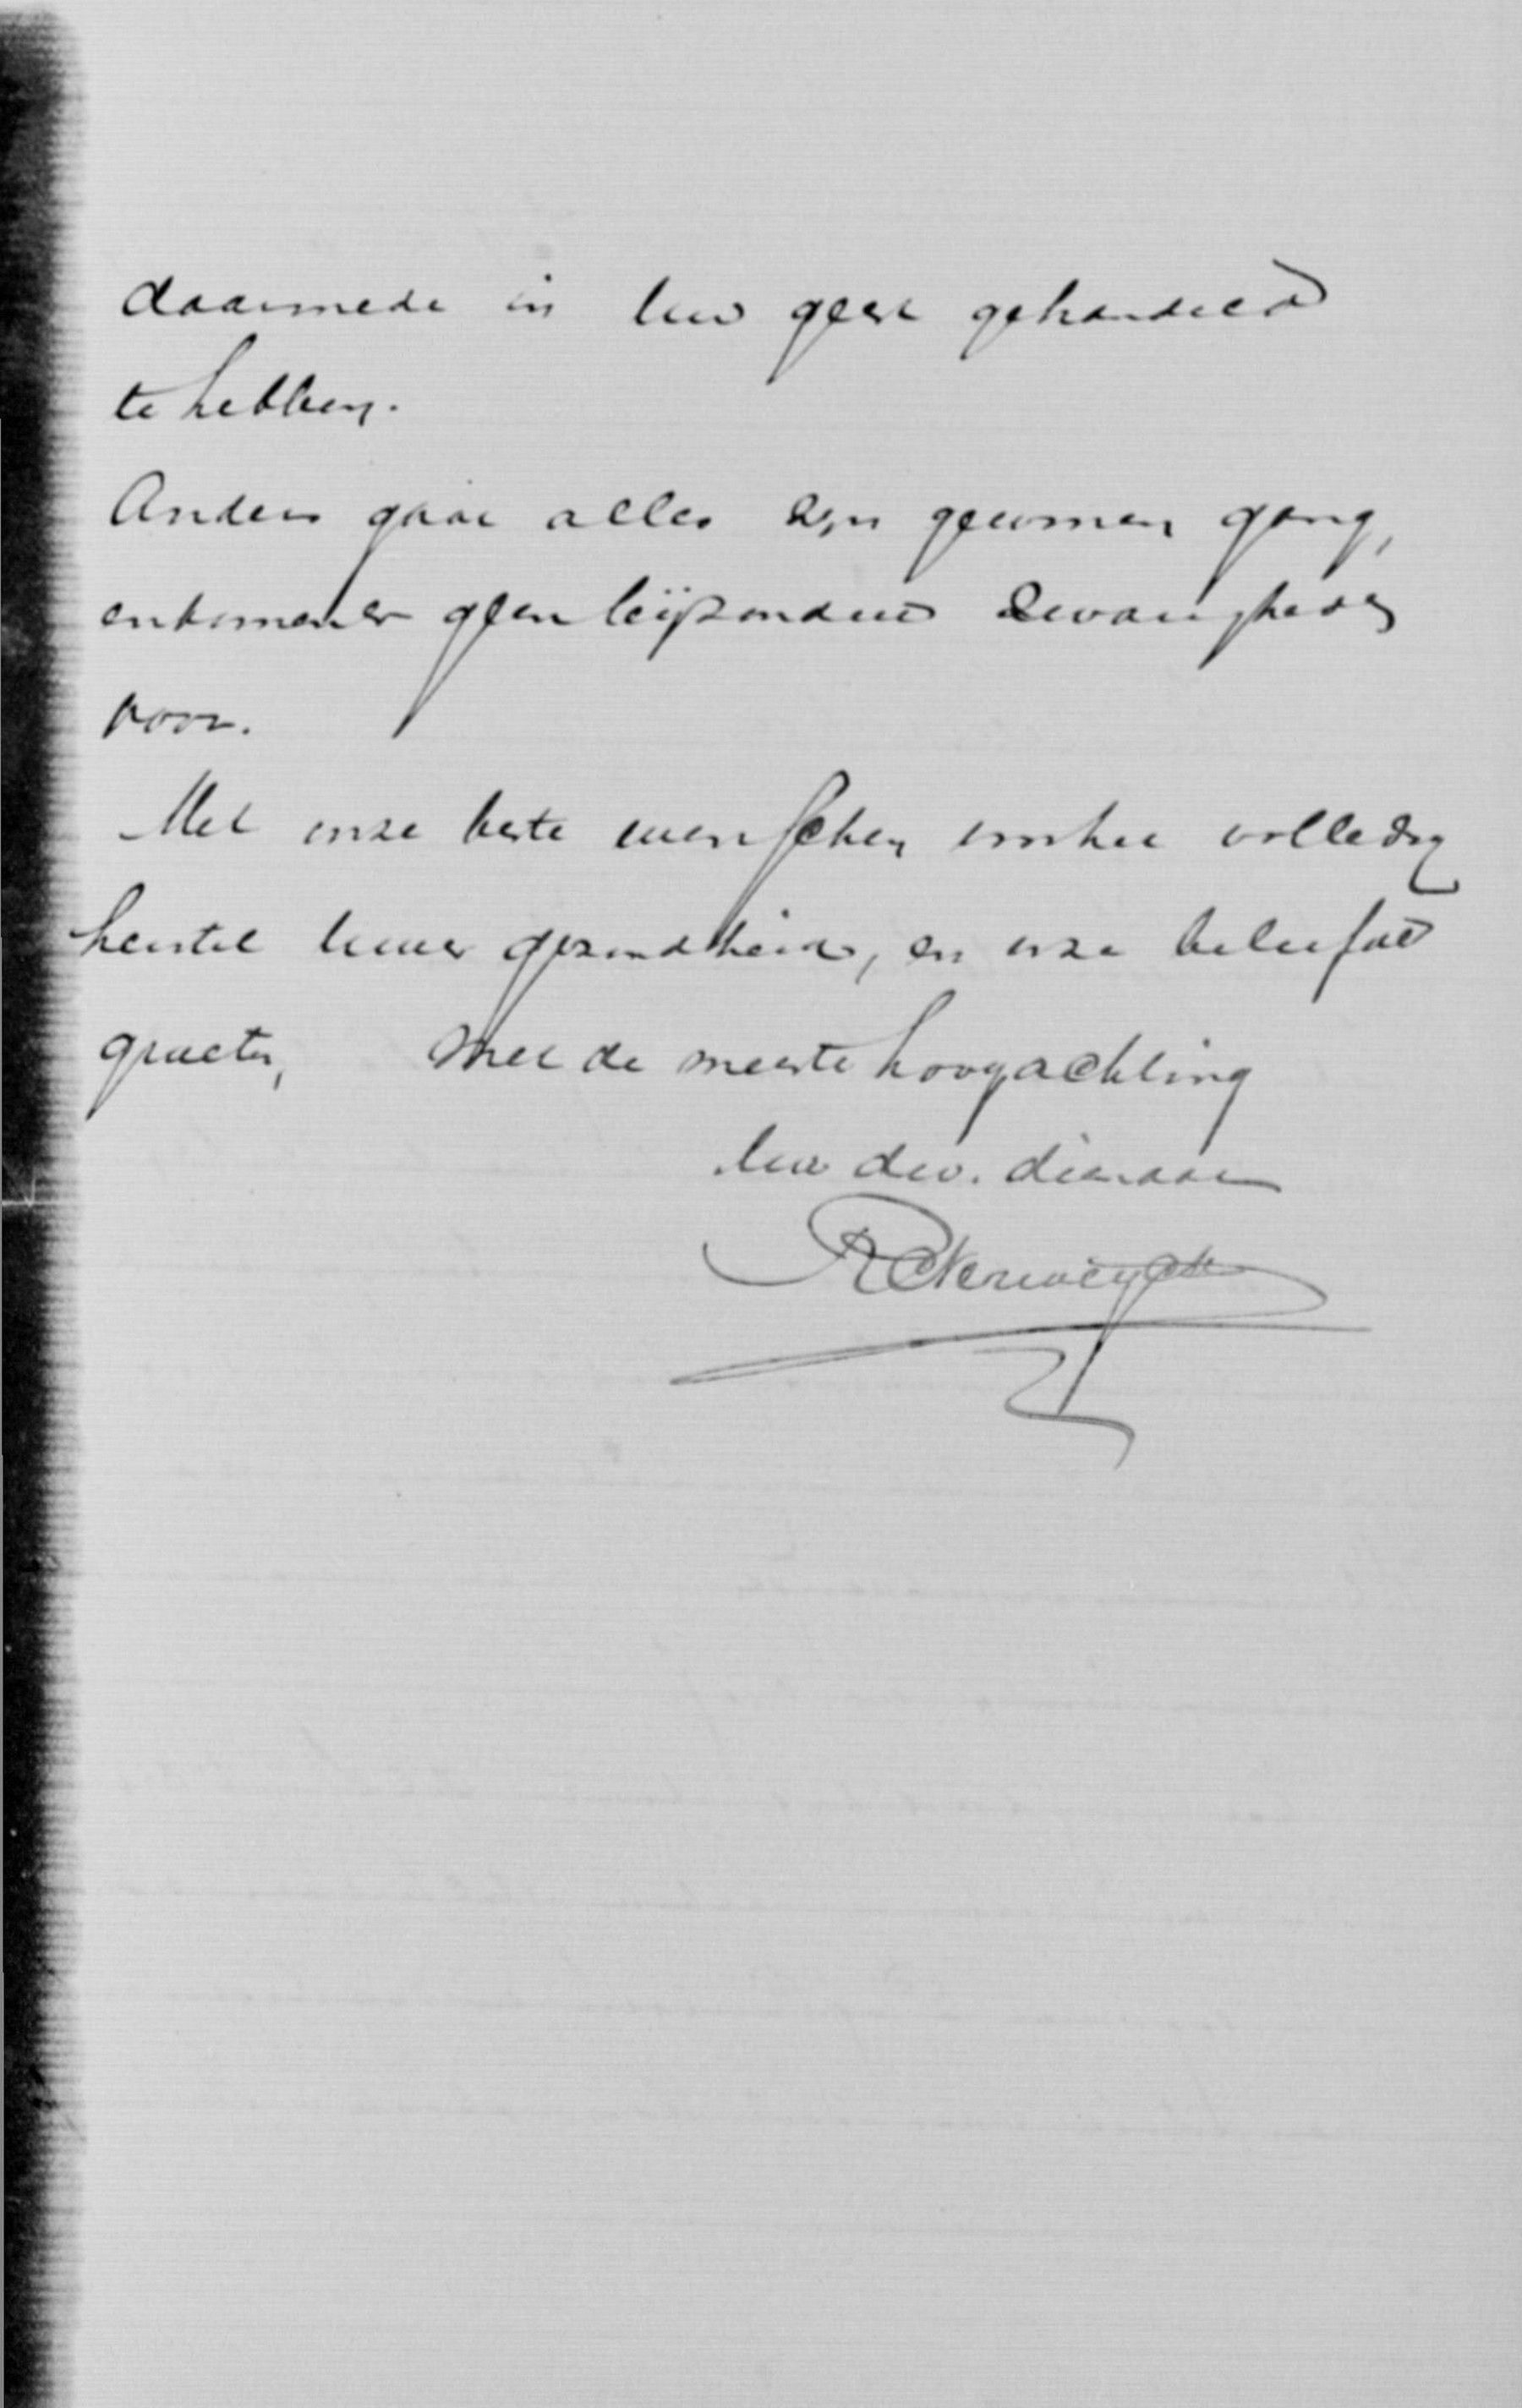 daarmede in Uw geest gehandeld
te hebben.
Anders gaat alles zijn gewonen gang,
en komen er geen bijzondere zwarigheden
voor.
Met onze beste wenschen voor het volledig
herstel Uwer gezondheid, en onze beleefde
groeten, Met de meeste hoogachting
Uw dw. dienaar